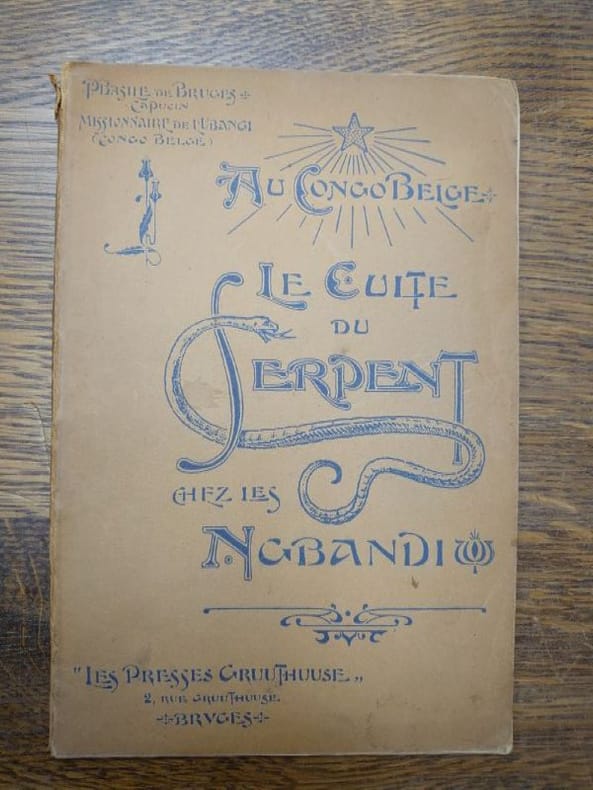 P. BASILE DE BRUGES
CAPUCIN
MISSIONNAIRE DE L'UBANGI
(CONGO BELGE)
AU CONGO BELGE
LE CULTE
DU
SERPENT
CHEZ LES
NGBANDI
J.V.C
"LES PRESSES GRUUTHUUSE„
2, RUE GRUUTHUUSE
BRVGES